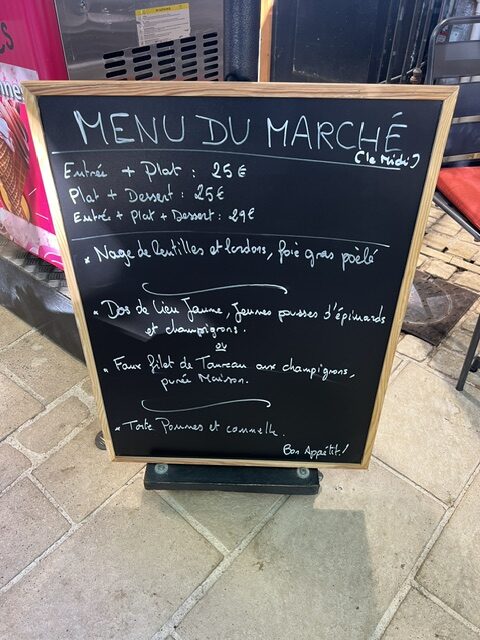 MENU DU MARCHÉ
(le Midi)
Entrée + Plat : 25€
Plat + Dessert : 25€
Entrée + Plat + Dessert : 29€
* Nage de lentilles et lardons, foie gras poêlé
* Dos de lieu Jaune, Jeunes pousses d'épinards
et champignons.
ou
* Faux filet de Taureau aux champignons,
purée Maison.
* Tarte Pommes et cannelle.
Bon Appétit!